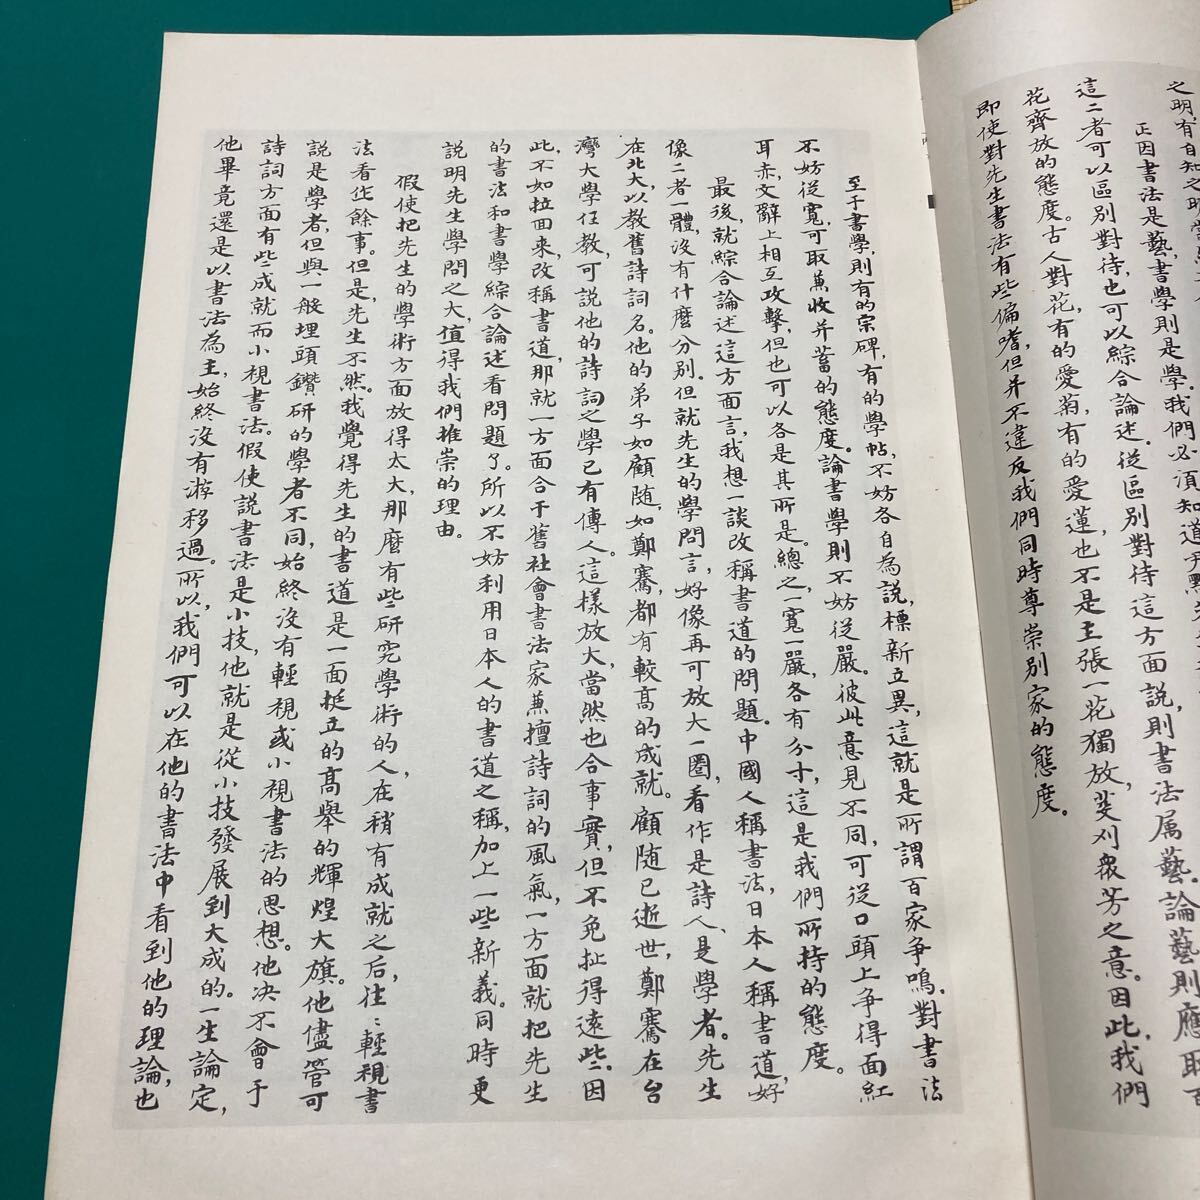 之明有自知之明
正因書法是藝，書學則是學，我們必須知道
這二者可以區別對待，也可以綜合論述。從區別對待這方面說，則書法屬藝。論藝則應取百
花齊放的態度。古人對花，有的愛菊，有的愛蓮，也不是主張一花獨放，芟刈衆芳之意。因此，我們
即使對先生書法有些偏嗜，但并不違反我們同時尊崇別家的態度。
至于書學，則有的宗碑，有的學帖，不妨各自為說，標新立異，這就是所謂百家争鳴。對書法
不妨從寬，可取兼收并蓄的態度。論書學則不妨從嚴。彼此意見不同，可從口頭上争得面紅
耳赤，文辭上相互攻擊，但也可以各是其所是。總之，一寬一嚴，各有分寸，這是我們所持的態度。
最後，就綜合論述這方面言，我想一談改稱書道的問題。中國人稱書法，日本人稱書道，好
像二者一體，沒有什麼分別。但就先生的學問言，好像再可放大一圈，看作是詩人、是學者。先生
在北大，以教舊詩詞名。他的弟子如顧随，如鄭騫，都有較高的成就。顧随已逝世，鄭騫在台
灣大學任教，可説他的詩詞之學已有傳人。這樣放大，當然也合事實，但不免扯得遠些。因
此不如拉回來，改稱書道，那就一方面合于舊社會書法家兼擅詩詞的風氣，一方面就把先生
的書法和書學綜合論述看問題了。所以不妨利用日本人的書道之稱，加上一些新義。同時更
説明先生學問之大，值得我們推崇的理由。
假使把先生的學術方面放得太大，那麼有些研究學術的人，在稍有成就之后，往：輕視書
法看作餘事。但是，先生不然。我覺得先生的書道是一面挺立的高舉的輝煌大旗。他儘管可
說是學者，但與一般埋頭鑽研的學者不同，始終沒有輕視或小視書法的思想。他决不會于
詩詞方面有些成就而小視書法。假使説書法是小技，他就是從小技發展到大成的。一生論定，
他畢竟還是以書法為主，始終沒有游移過。所以，我們可以在他的書法中看到他的理論，也